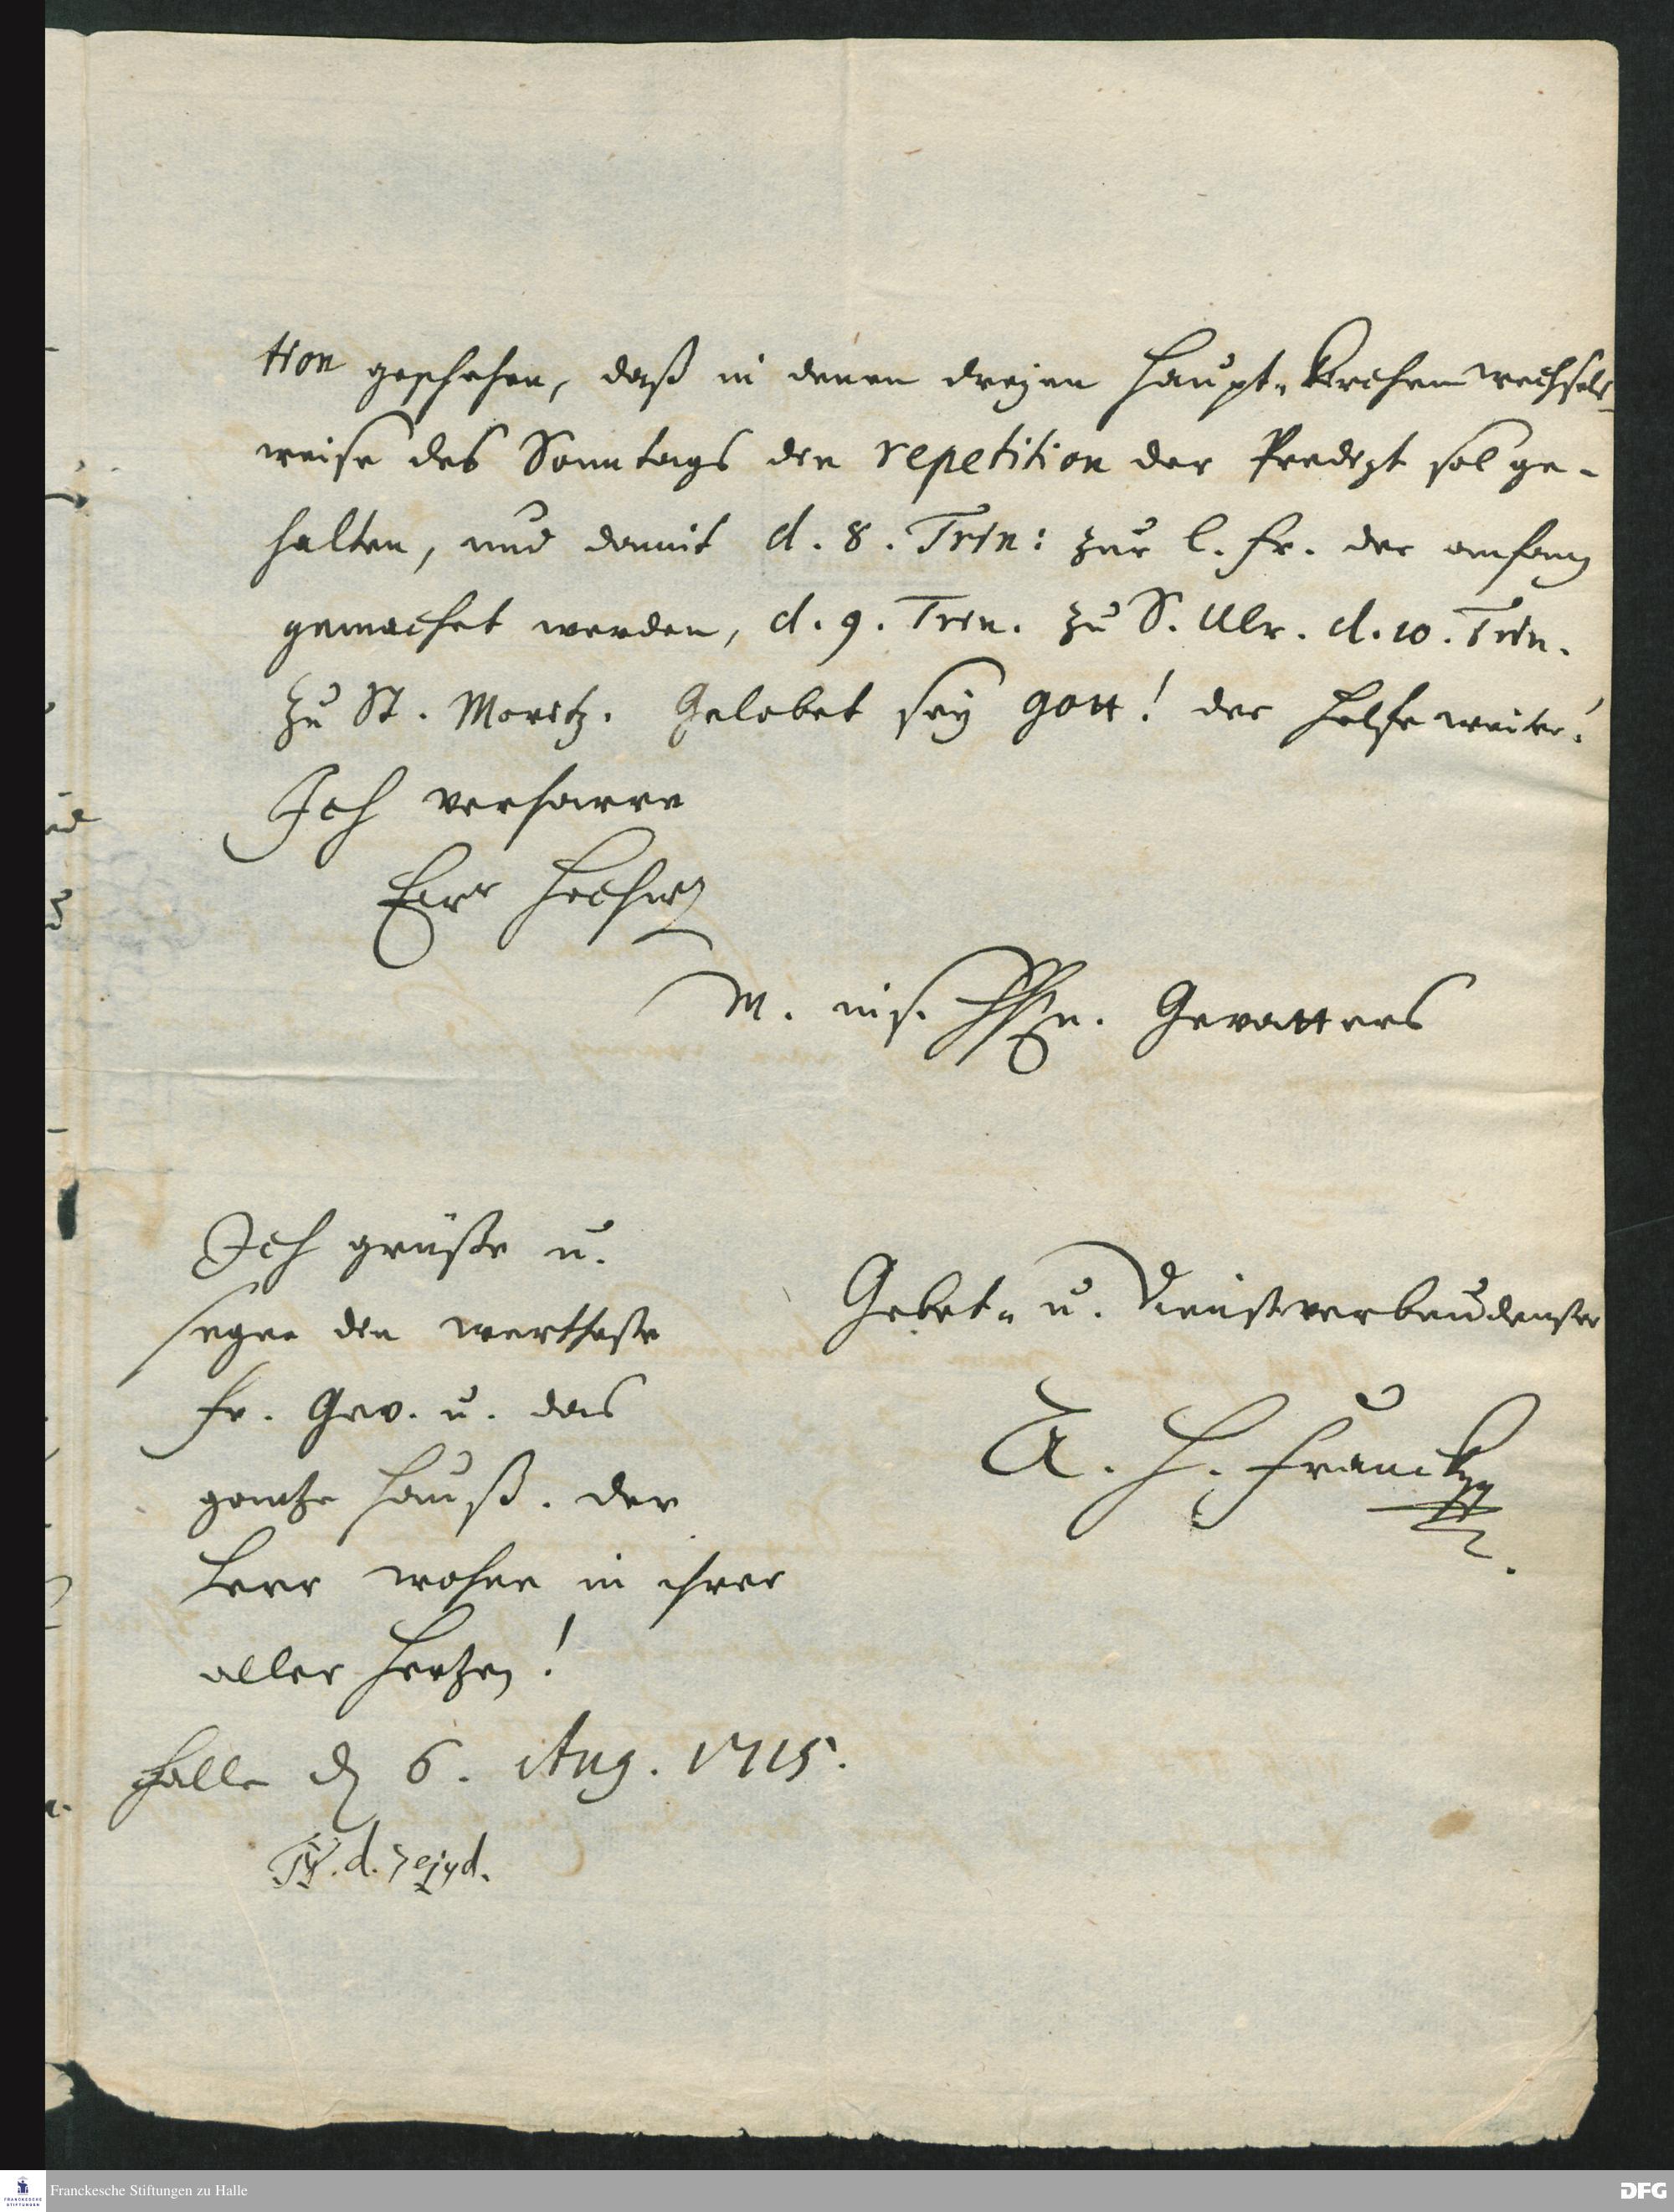 tion geschehen, daß in denen dreyen Haupt-Kirchen wechsels-
weise des Sonntags die repetition der Predigt sol ge-
halten, und damit d. 8. Trin: zur l. Fr. der anfang
gemachet werden, d. 9. Trin. zu S. Ulr. d. 10. Trin.
zu St. Moritz. Gelobet sey Gott! der helfe weiter!
Ich verharre
Eur Hochw
M. ins. Gevatters
Ich grüße u.
segne die wertheste
Fr. Gev. u. das
gantze Hauß. der
Herr wohne in ihrer
aller Hertzen!
Gebet- u. Dienstverbundenster
A. H. Francke
Halle d 6. Aug. 1715.